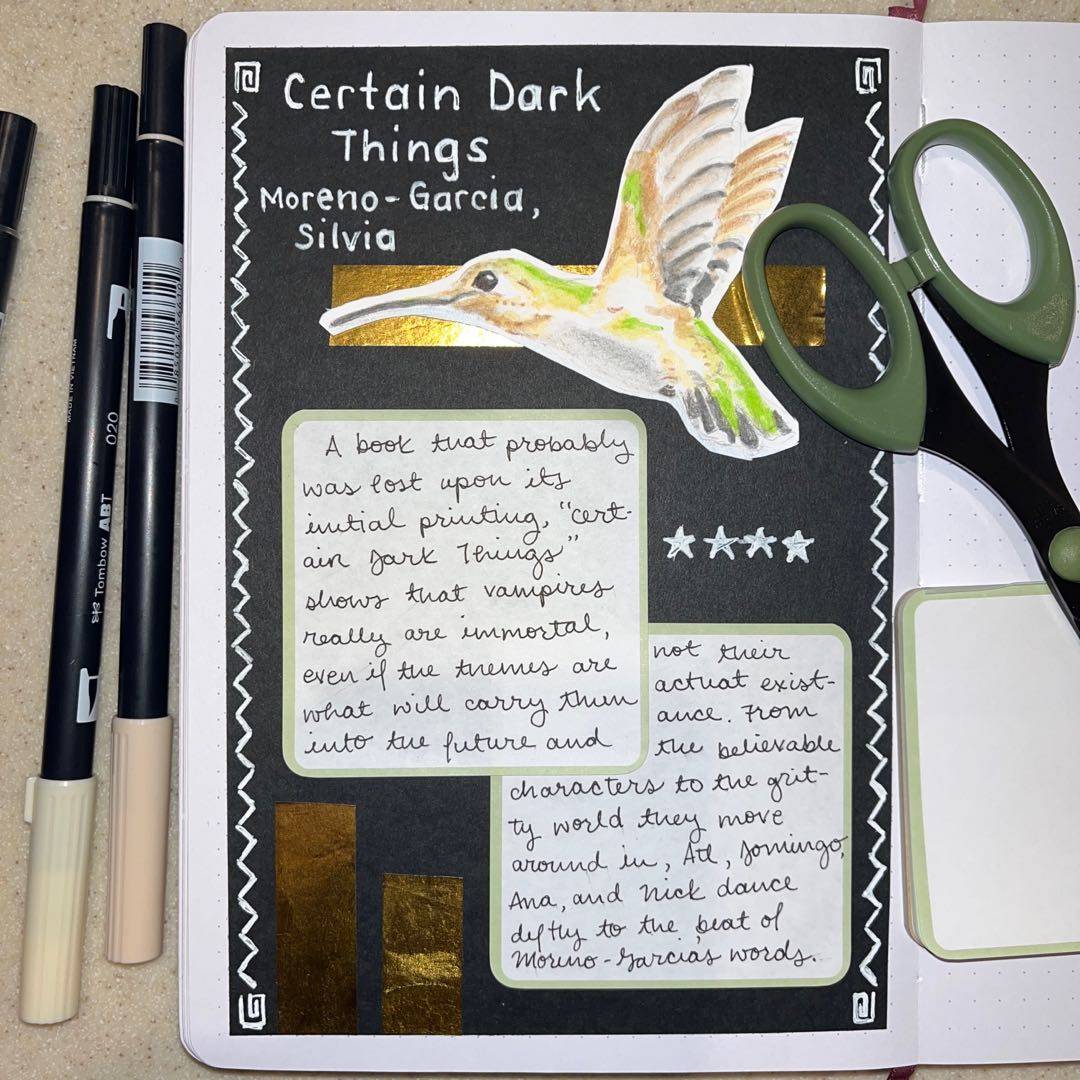 Certain Dark
Things
Moreno-Garcia,
Silvia
A book that probably
was lost upon its
initial printing, "cert-
ain Dark Things"
shows that vampires
really are immortal,
even if the themes are
what will carry them
into the future and
not their
actual exist-
ance. From
the believable
characters to the grit-
ty world they move
around in, Atl, Domingo,
Ana, and Nick dance
deftly to the beat of
Moreno-Garcia's words.
MADE IN VIETNAM
020
Tombow ABT